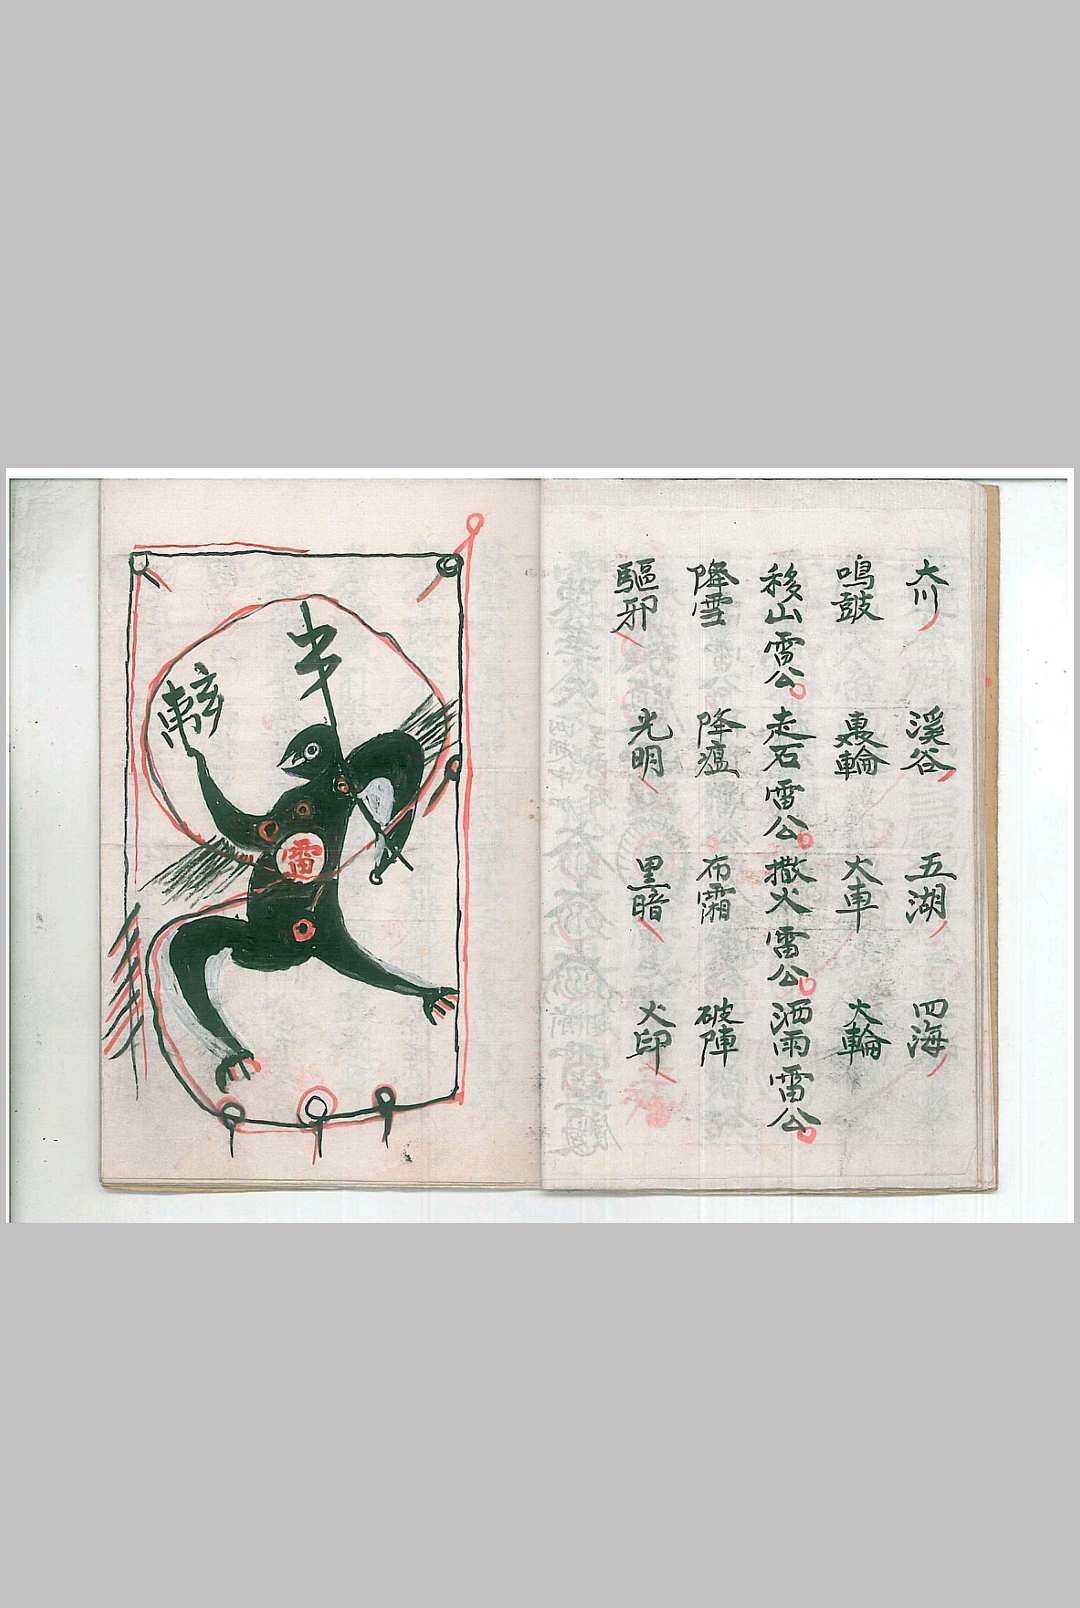 大川 溪谷 五湖 四海
鳴鼓 輪 大車 大輪
移山雷公 走石雷公 撒火雷公 洒雨雷公
降雪 降瘟 布霜 破陣
驅邪 光明 黑暗 火印
雷